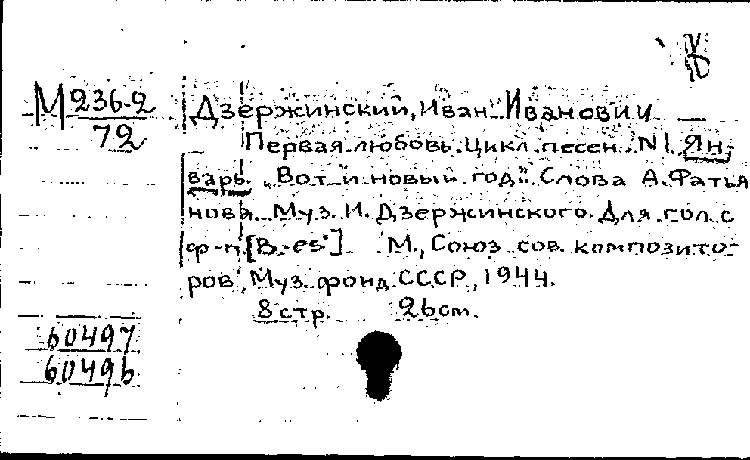 М 236-2
72
Дзержинский, Иван Иванович
Первая любовь. Цикл песен. N1. Ян-
варь. „Вот и новый год". Слова А. Фатья
нова. Муз. И. Дзержинского. Для гол. с
ф-п. [B.-es'] М., Союз сов. композито-
ров, Муз. фонд СССР, 1944.
8 стр. 26 cm.
60497
60496